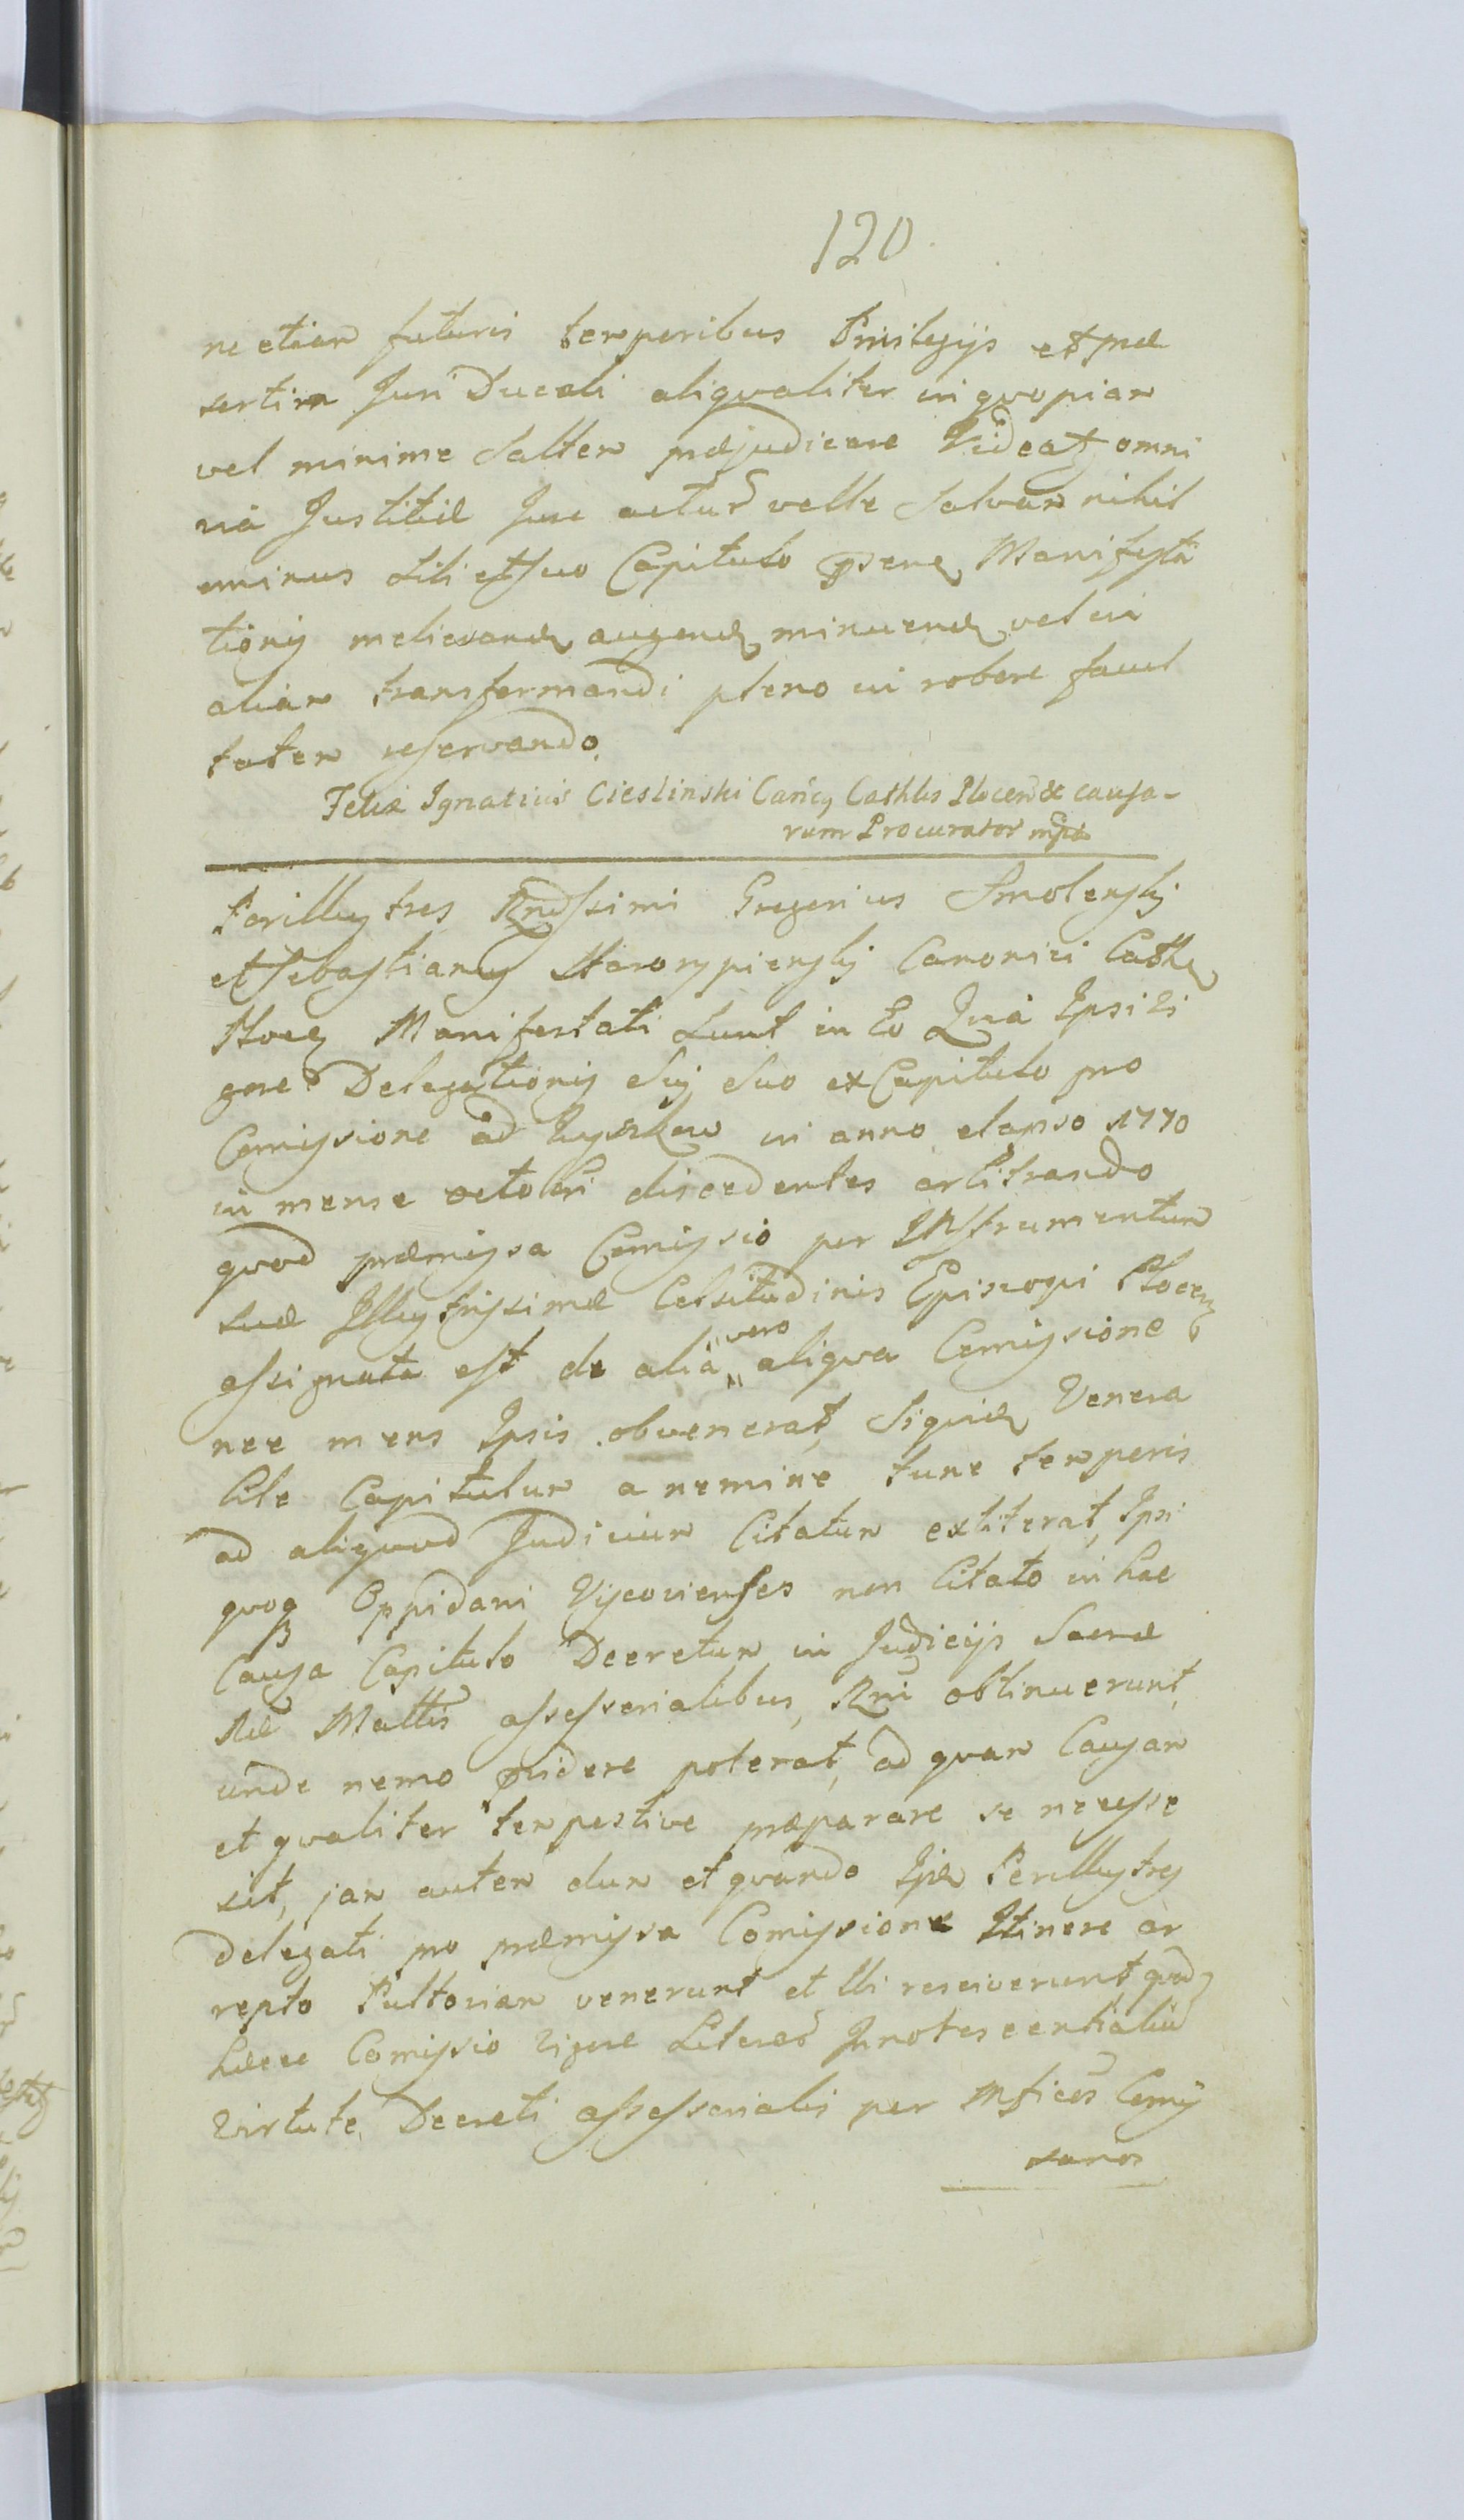 120.
ne etiam futuris temporibus Privilegijs et præ
sertim Juri Ducali aliqvaliter in qvopiam
vel minime Saltem præjudicare Videat omni
na Justitiæ Jure actur velle Salvam nihil
ominus Sibi et Suo Capitulo pseng Manifesta
tionis meliorand augend minuend vel in
aliam transformandi pleno in robore facul
tatem reservando.
Felix Ignatius Cieslinski Canicg Cathlis Plocen & causa-
rum Procurator mpia
Perillustres Rndssimi Gregorius Smolensky
et Sebastianus Starorypiensky Canonici Cathe
Plocen Manifestati Sunt in Eo Quia Ipsi Vi
gore Delegationis Suj Suo ex Capitulo pro
Comissione ad Wyszkow in anno elapso 1770
in mense octobri discedentes arbitrando
qvod præmissa Comissio per INstrumentum
Suæ Illustrissimæ Celsitudinis Episcopi Plocen
assignata est de alia vero aliqva Comissione
nec mens Ipsis obvenerat, Siquid Venera
bile Capitulum a nemine tunc temporis
ad aliqvod Judicium Citatum extiterat, Ipsi
qvoq Oppidani Viscovienses non Citato in hac
Causa Capitulo Decretum in Judicijs Sacræ
Ræ Mattis assessorialibus, Rni obtinuerunt,
unde nemo pvidere poterat, ad qvam Causam
et qvaliter tempestive præparare se necesse
sit, jam autem dum et qvando Ipsi Perillustres
delegati pro præmissa Comissione Itinere ar
repto Pultoviam venerunt et Ibi resciverunt, qvod
hæcce Comissio vigore Literar Innotescentialiu
virtute Decreti assessorialis per Mficos Comis
sarios